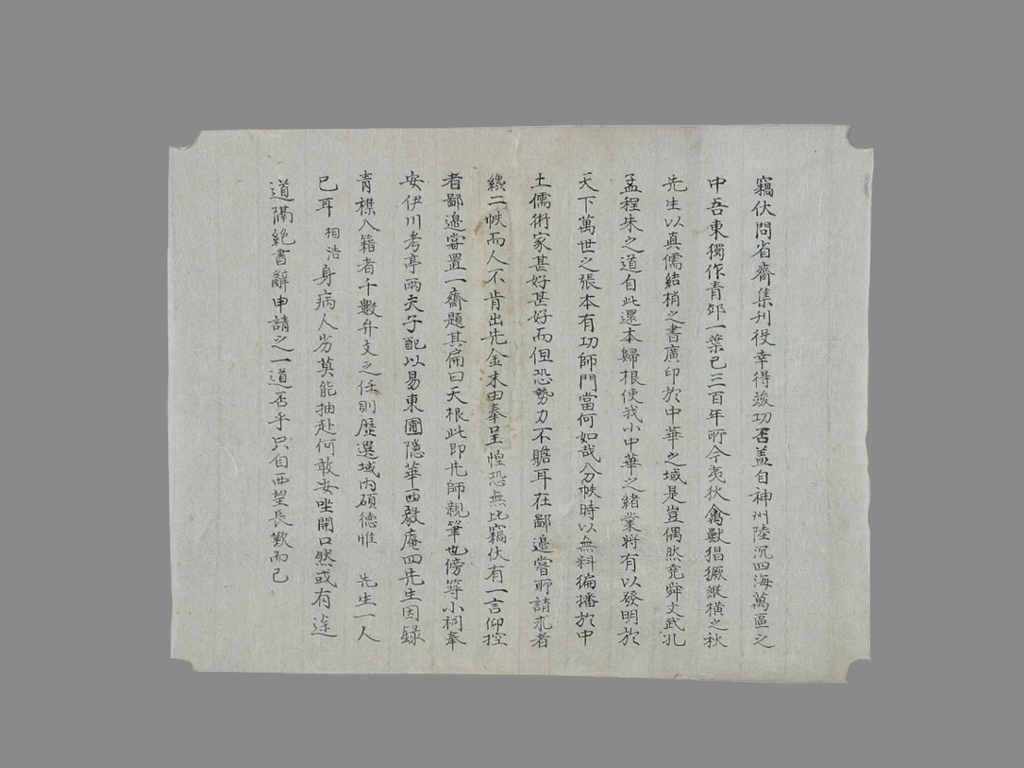 竊伏問省齋集刊役幸得竣功否盖自神州陸沉四海萬區之
中吾東獨作青邱一葉已三百年所今夷狄禽獸猖獗縱橫之秋
先生以真儒結梢之書廣印於中華之域是豈偶然堯舜文武孔
孟程朱之道自此還本歸根使我小中華之緒業將有以發明於
天下萬世之張本有功師門當何如哉分帙時以無料徧播於中
土儒術家甚好甚好而但恐勢力不贍耳在鄙邊嘗所請求者
幾二帙而人不肯出先金末由奉呈惶恐無比竊伏有一言仰控
者鄙邊嘗置一齋題其扁曰天根此即先師親筆也傍等小祠奉
安伊川考亭兩夫子配以易東圃隱華西毅庵四先生因錄
青襟入籍者千數弁文之任則歷選域內碩德惟 先生一人
已耳 相浩 身病人劣莫能抽赴何敢妄唑開口然或有途
道隔絶書辭申請之一道否乎只自西望長歎而已